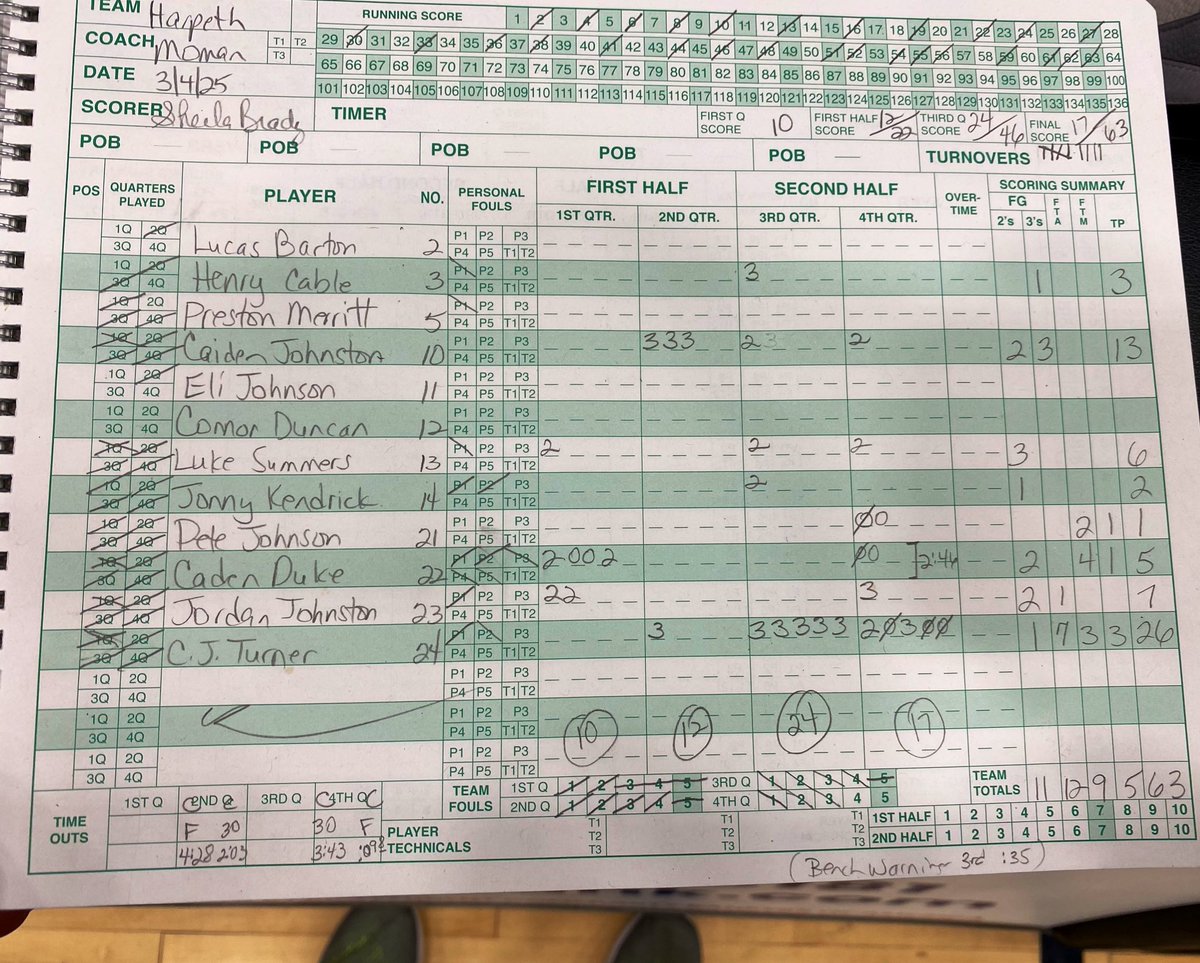 TEAM Harpeth RUNNING SCORE 1 2 3 4 5 6 7 8 9 10 11 12 13 14 15 16 17 18 19 20 21 22 23 24 25 26 27 28
COACH Moman T1 T2 T3 29 30 31 32 33 34 35 36 37 38 39 40 41 42 43 44 45 46 47 48 49 50 51 52 53 54 55 56 57 58 59 60 61 62 63 64
DATE 3/4/25 65 66 67 68 69 70 71 72 73 74 75 76 77 78 79 80 81 82 83 84 85 86 87 88 89 90 91 92 93 94 95 96 97 98 99 100
101 102 103 104 105 106 107 108 109 110 111 112 113 114 115 116 117 118 119 120 121 122 123 124 125 126 127 128 129 130 131 132 133 134 135 136
SCORER Sheela Brady TIMER FIRST Q SCORE 10 FIRST HALF SCORE 12/22 THIRD Q SCORE 24/46 FINAL SCORE 17/63
POB POB POB POB POB TURNOVERS
POS QUARTERS PLAYED PLAYER NO. PERSONAL FOULS FIRST HALF SECOND HALF OVER-TIME SCORING SUMMARY
1ST QTR. 2ND QTR. 3RD QTR. 4TH QTR. FG 2's 3's FTA FTM TP
1Q 2Q 3Q 4Q Lucas Barton 2 P1 P2 P3 P4 P5 T1 T2
1Q 2Q 3Q 4Q Henry Cable 3 P1 P2 P3 P4 P5 T1 T2 3 1 3
1Q 2Q 3Q 4Q Preston Merritt 5 P1 P2 P3 P4 P5 T1 T2
1Q 2Q 3Q 4Q Caiden Johnston 10 P1 P2 P3 P4 P5 T1 T2 333 2 2 2 3 13
1Q 2Q 3Q 4Q Eli Johnson 11 P1 P2 P3 P4 P5 T1 T2
1Q 2Q 3Q 4Q Comor Duncan 12 P1 P2 P3 P4 P5 T1 T2
1Q 2Q 3Q 4Q Luke Summers 13 P1 P2 P3 P4 P5 T1 T2 2 2 2 3 6
1Q 2Q 3Q 4Q Jonny Kendrick 14 P1 P2 P3 P4 P5 T1 T2 2 1 2
1Q 2Q 3Q 4Q Pete Johnson 21 P1 P2 P3 P4 P5 T1 T2 00 2 1 1
1Q 2Q 3Q 4Q Caden Duke 22 P1 P2 P3 P4 P5 T1 T2 2002 00 2:46 2 4 1 5
1Q 2Q 3Q 4Q Jordan Johnston 23 P1 P2 P3 P4 P5 T1 T2 22 3 2 1 7
1Q 2Q 3Q 4Q C.J. Turner 24 P1 P2 P3 P4 P5 T1 T2 3 33333 20300 1 7 3 3 26
1Q 2Q 3Q 4Q P1 P2 P3 P4 P5 T1 T2
1Q 2Q 3Q 4Q P1 P2 P3 P4 P5 T1 T2 10 12 24 17
1Q 2Q 3Q 4Q P1 P2 P3 P4 P5 T1 T2
TEAM FOULS 1ST Q 1 2 3 4 5 3RD Q 1 2 3 4 5 TEAM TOTALS 11 12 9 5 63
2ND Q 1 2 3 4 5 4TH Q 1 2 3 4 5
TIME OUTS 1ST Q 2ND Q 3RD Q 4TH Q 1ST HALF 1 2 3 4 5 6 7 8 9 10
F 30 30 F PLAYER TECHNICALS T1 T2 T3 T1 T2 T3 T1 T2 T3 2ND HALF 1 2 3 4 5 6 7 8 9 10
4:28 2:03 3:43
(Bench Warning 3rd :35)